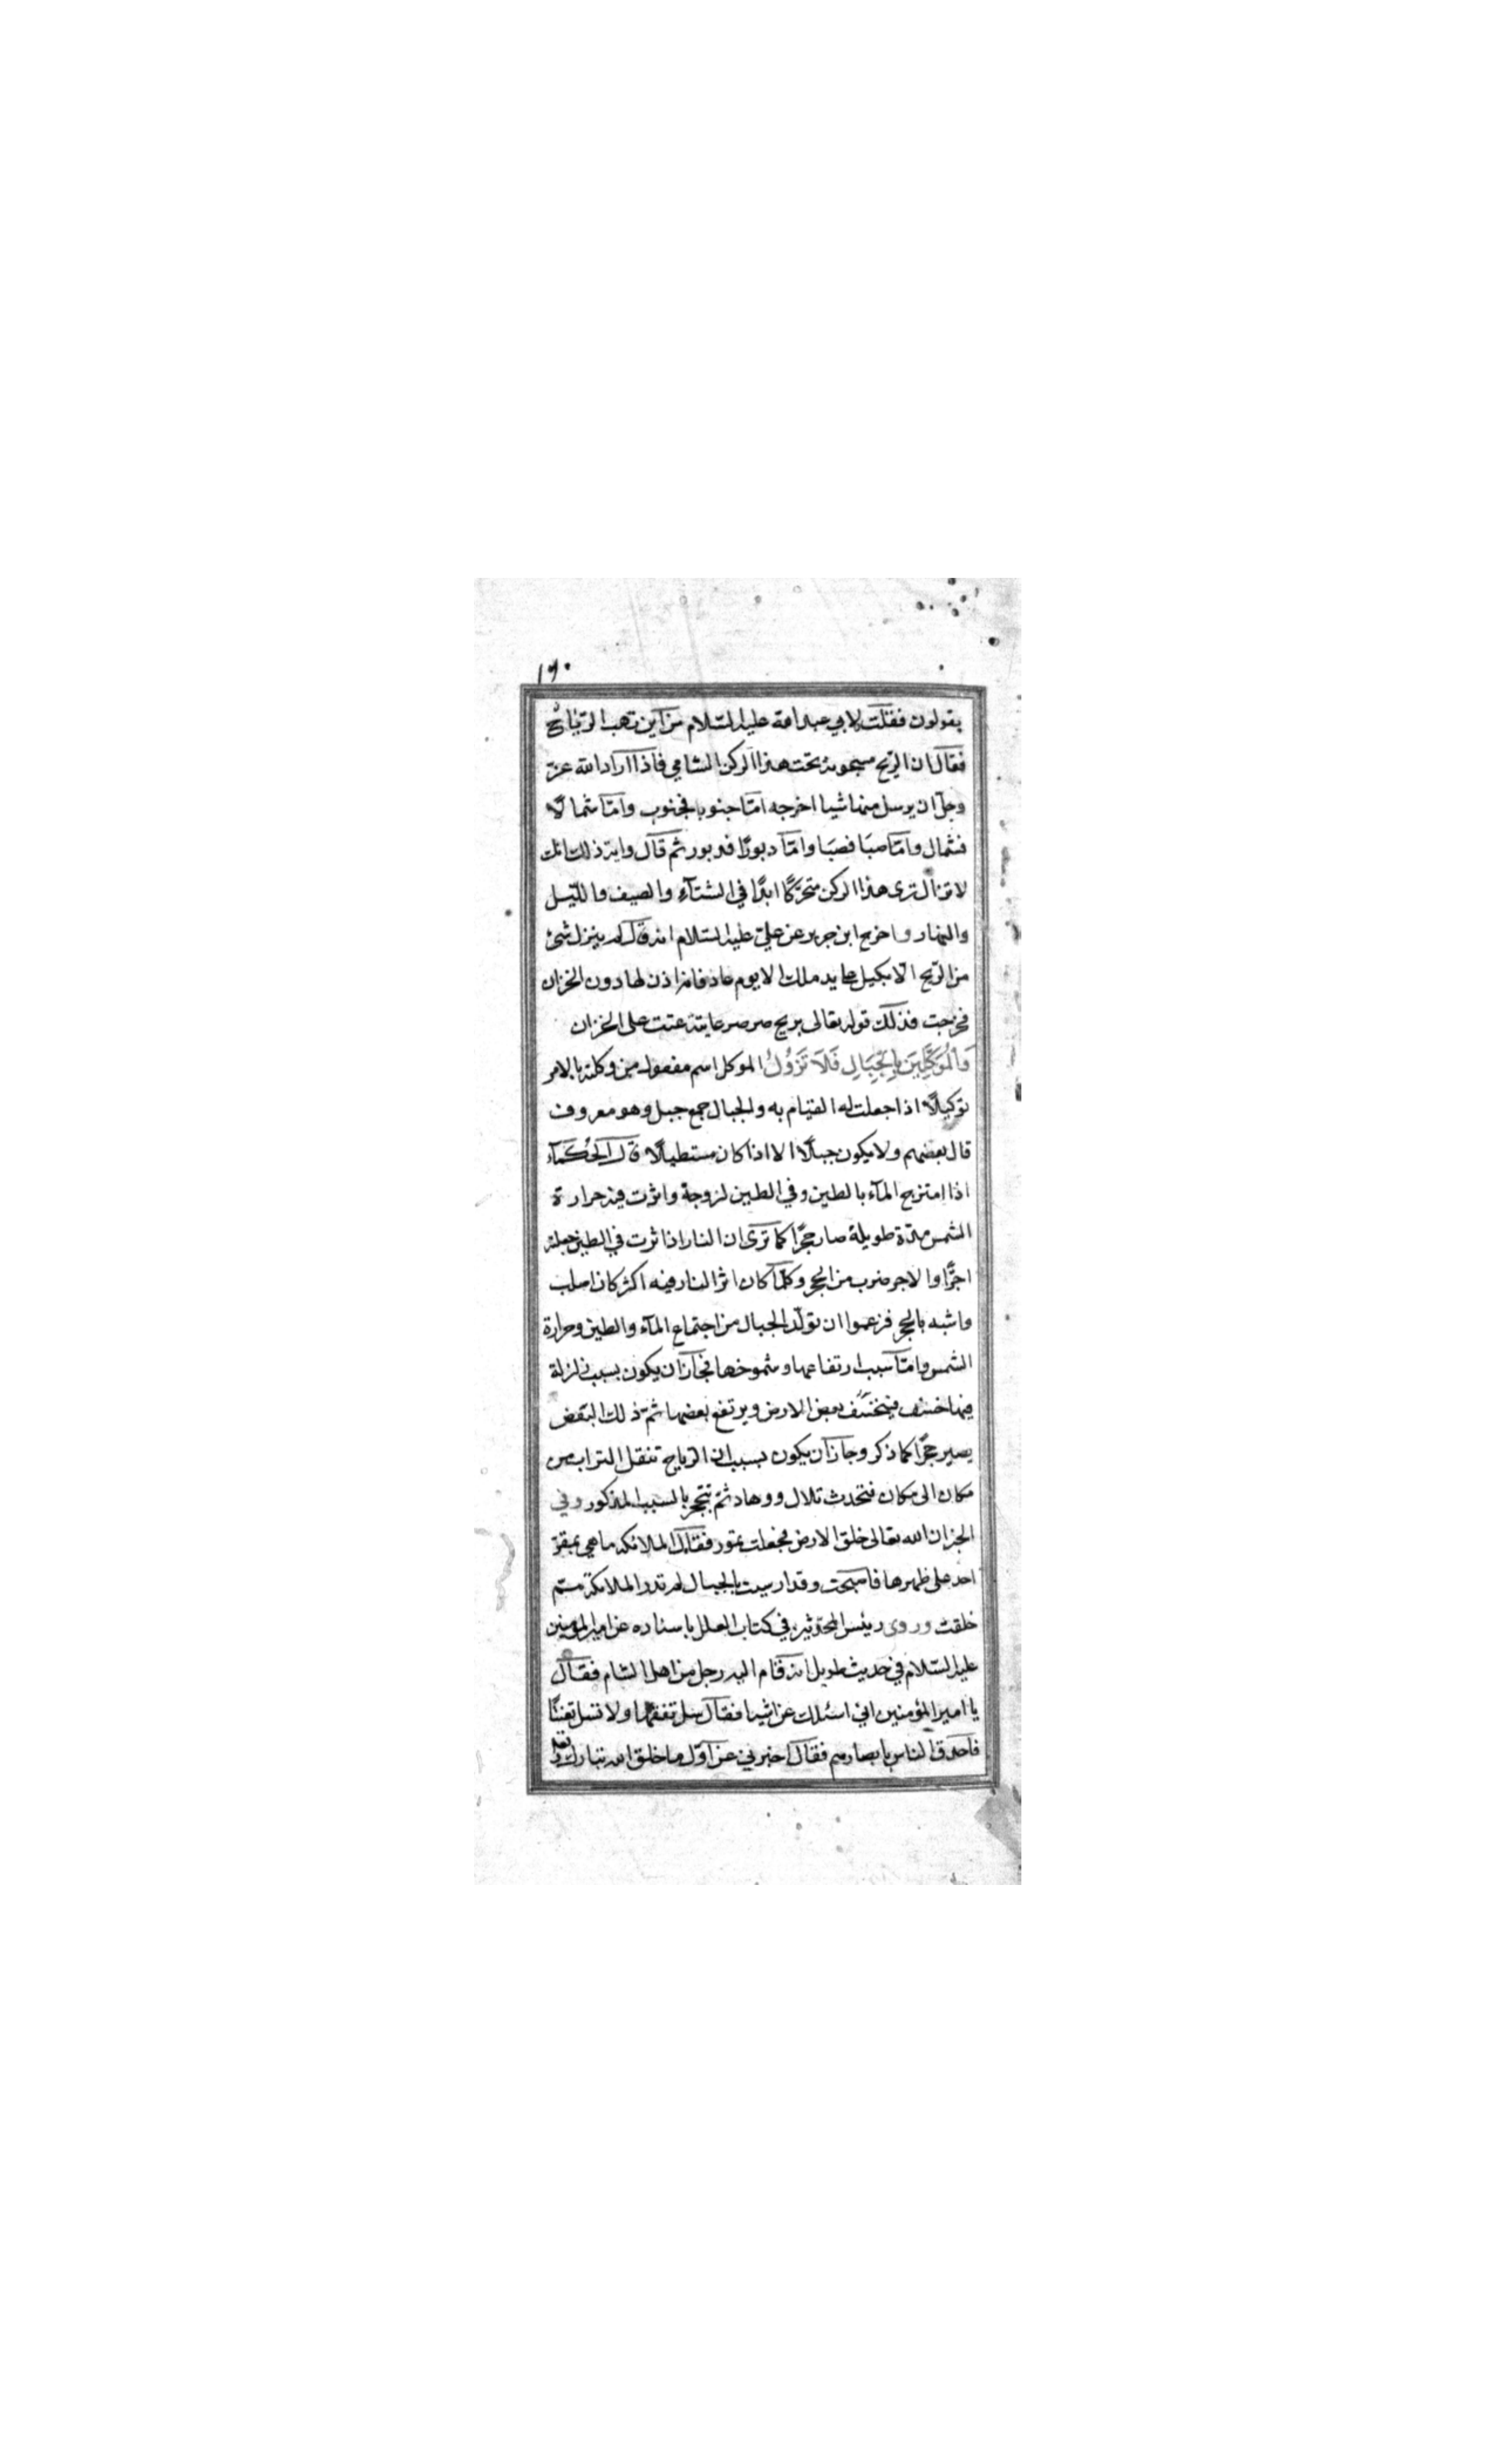 ١٦٠
يقولون فقلت لابي عبد الله عليه السّلام من اين تهب الريّاح
فقال ان الريح مسجونة تحت هذا الركن الشامي فاذا اراد الله عزّ
وجلّ ان يرسل منها شيا اخرجه امّا جنوبا فجنوب وامّا شمالًا
فشمال وامّا صبًا فصبًا وامّا دبورًا فدبور ثم قال واية ذلك انك
لا تزال ترى هذا الركن متحرّكًا ابدًا في الشتآء والصيف والليّل
والنهار واخرج ابن جرير عن عليّ عليه السّلام انه قال لم ينزل شئ
من الريّح الّا بكيل على يد ملك الا يوم عاد فانه اذن لها دون الخزان
فخرجت فذلك قوله تعالى بريح صرصر عاتية عتت على الخزان
وَالْمُوَكَّلِينَ بِالْجِبَالِ فَلَا تَزُولُ الموكل اسم مفعول من وكلته بالامر
توكيلًا اذا جعلت له القيام به والجبال جمع جبل وهو معروف
قال بعضهم ولا يكون جبلًا الا اذا كان مستطيلًا قال الحُكمآء
اذا امتزج المآء بالطين وفي الطين لزوجة واثرت فيه حرارة
الشمس مدّة طويلة صار حجرًا كما ترى ان النار اذا اثرت في الطين جعلته
اجرًّا والاجر ضرب من الحجر وكلّما كان اثر النار فيه اكثر كان اصلب
واشبه بالحجر فزعموا ان تولّد الجبال من اجتماع المآء والطين وحرارة
الشمس وامّا سبب ارتفاعها وشموخها فجاز ان يكون بسبب زلزلة
فيها خسف فينخسف بعض الارض ويرتفع بعضها ثم ذلك البعض
يصير حجرًا كما ذكر وجاز ان يكون بسبب ان الرياح تنقل التراب من
مكان الى مكان فتحدث تلال ووهاد ثم تتحجر بالسبب المذكور وفي
الخبر ان الله تعالى خلق الارض فجعلت تمور فقال الملائكة ما هي بمقرّ
احد على ظهرها فاصبحت وقد ارسيت بالجبال لم تدر الملائكة ممّ
خلقت وروى رئيس المحدّثين في كتاب العلل باسناده عن امير المؤمنين
عليه السّلام في حديث طويل انه قام اليه رجل من اهل الشام فقال
يا امير المؤمنين اني اسئلك عن اشيا فقال سل تفقهًا ولا تسل تعنتًا
فاحدق الناس بابصارهم فقال اخبرني عن اوّل ما خلق الله تبارك وتعـ